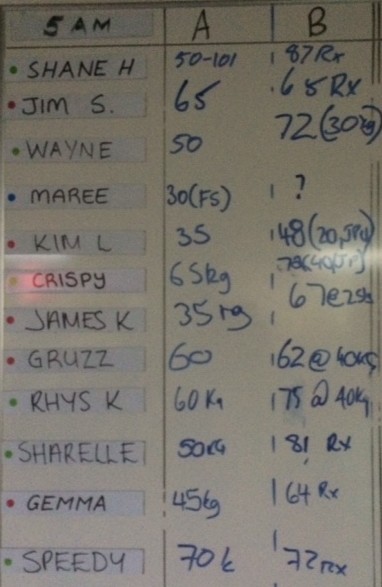 5 AM A B
SHANE H 50-101 87 Rx
JIM S. 65 65 Rx
WAYNE 50 72 (30kg)
MAREE 30(FS) ?
KIM L 35 48 (20,
CRISPY 65kg
JAMES K 35 67@25k
GRUZZ 60 62 @ 40kg
RHYS K 60 Kg 75 @ 40kg
SHARELLE 50KG 81 Rx
GEMMA 45kg 64 Rx
SPEEDY 70k 72 rx